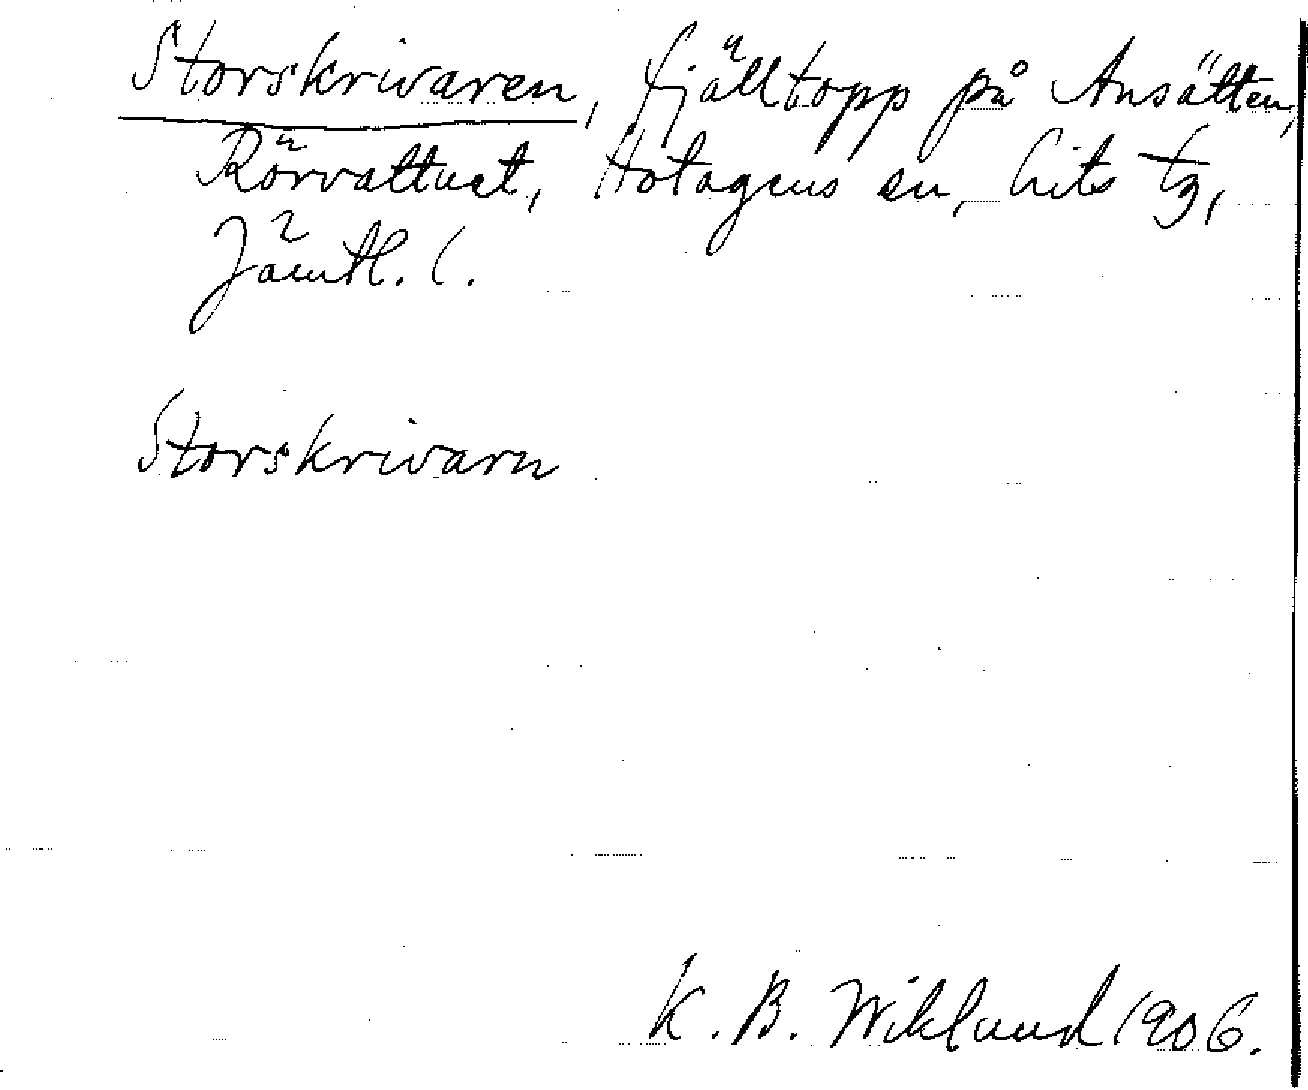 Storskrivaren, fjälltopp på Ansätten,
Rörvattnet, Hotagens sn, Lits tg,
Jämtl. l.
Storskrivarn
K. B. Wiklund 1906.